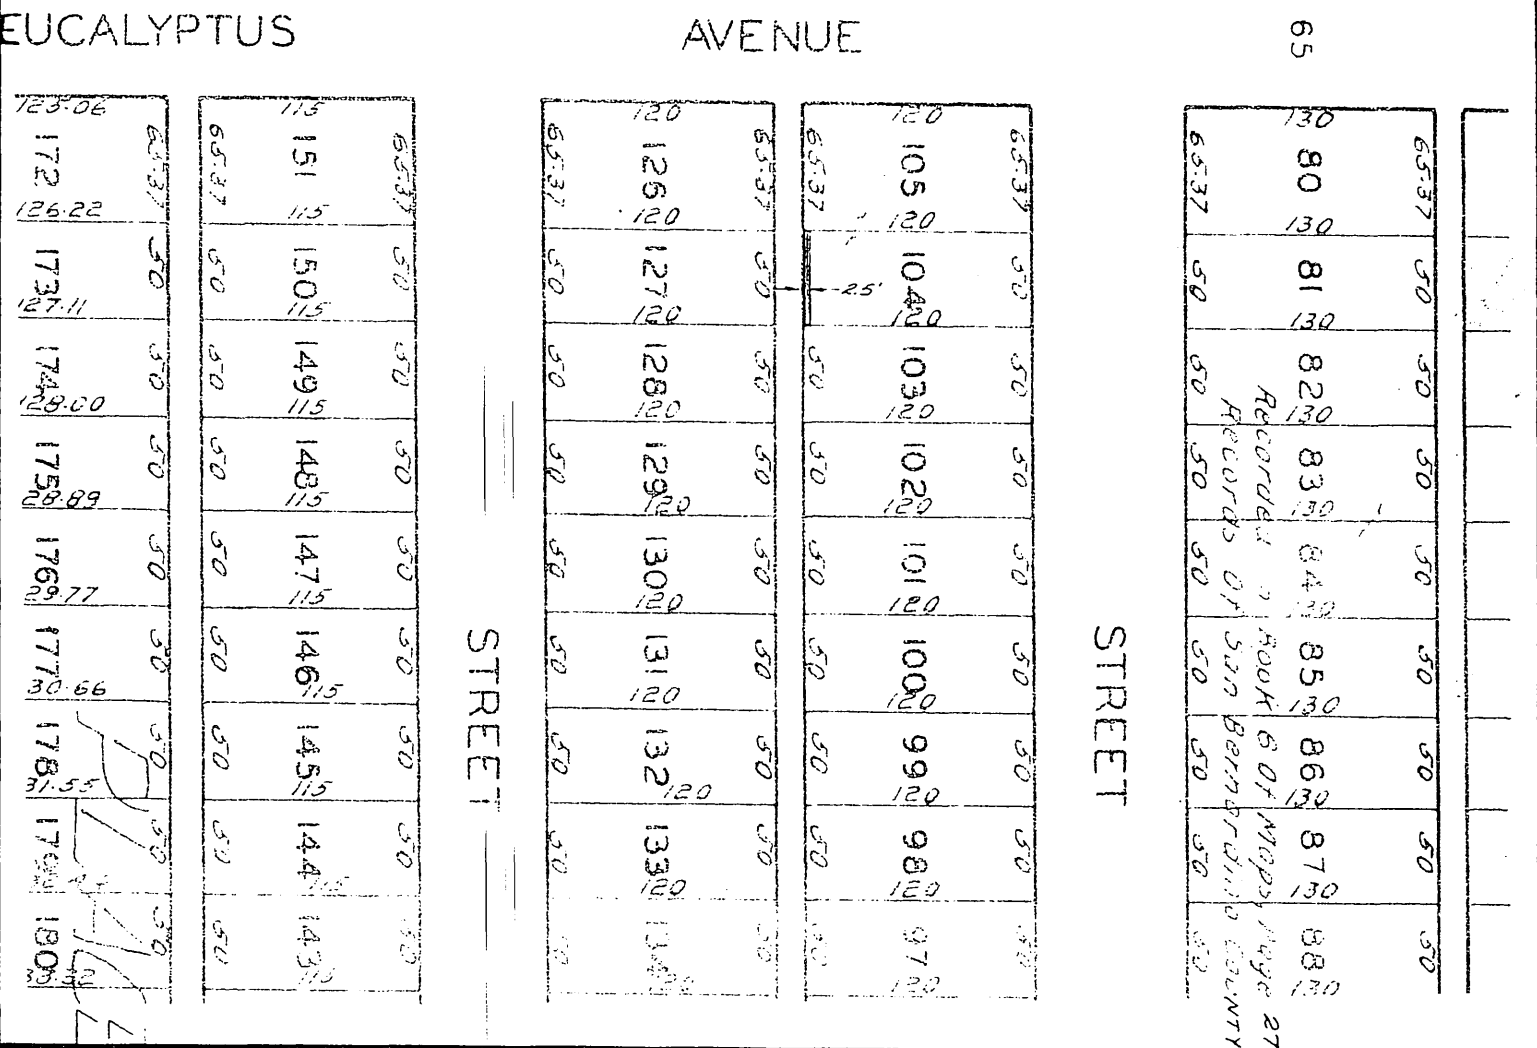 EUCALYPTUS AVENUE
65
123.06
172
65.37
126.22
173
50
127.11
174
50
128.00
175
50
28.89
176
50
29.77
177
50
30.66
178
50
31.55
50
180
50
115
65.37 151 65.37
115
50 150 50
115
50 149 50
115
50 148 50
115
50 147 50
115
50 146 50
115
50 145 50
115
50 144 50
115
50 143 50
115
STREET
120
65.37 126 65.37
120
50 127 50
120
50 128 50
120
50 129 50
120
50 130 50
120
50 131 50
120
50 132 50
120
50 133 50
120
50 134 50
120
65.37 105 65.37
120
2.5' 104 50
120
50 103 50
120
50 102 50
120
50 101 50
120
50 100 50
120
50 99 50
120
50 98 50
120
50 97 50
120
STREET
130
65.37 80 65.37
130
50 81 50
130
50 82 50
130
50 83 50
130
50 84 50
130
50 85 50
130
50 86 50
130
50 87 50
130
50 88 50
130
Recorded in Book 6 Of Maps, Page 27
Records Of San Bernardino COUNTY